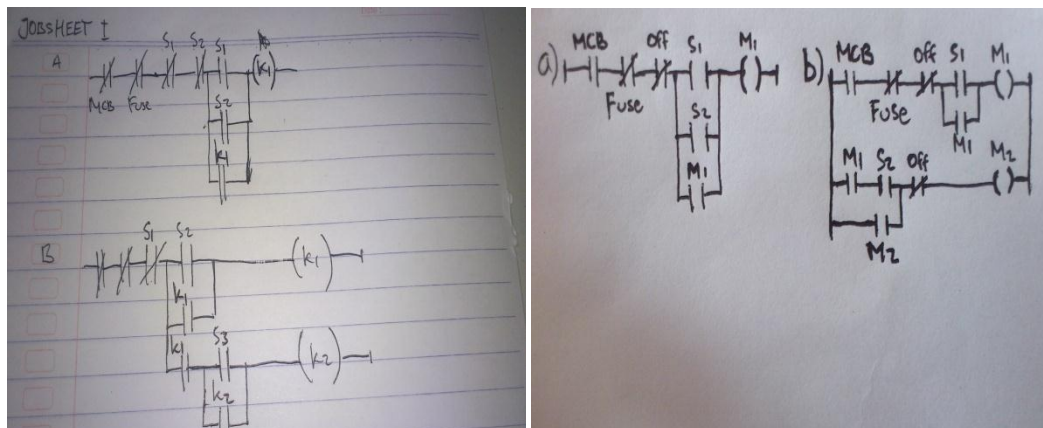 JOBSHEET I
A
S1 S2 S1 K1
MCB Fuse
S2
K1
B
S1 S2 K1
K1
K1 S3 K2
K2
a) MCB Off S1 M1
Fuse
S2
M1
b) MCB Off S1 M1
Fuse
M1
M1 S2 Off M2
M2